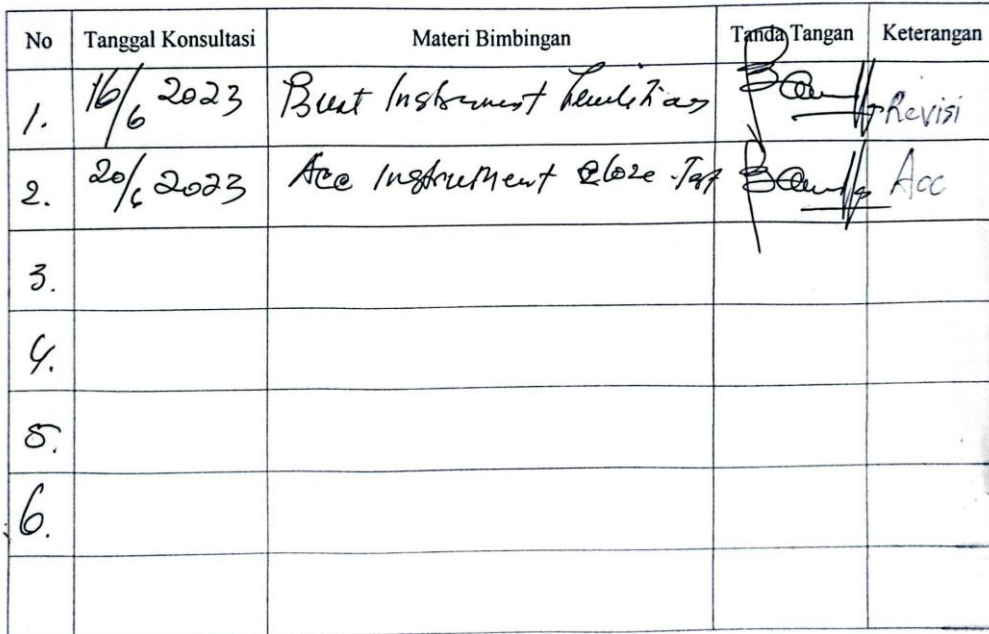 No Tanggal Konsultasi Materi Bimbingan Tanda Tangan Keterangan
1. 16/6 2023 Buat Instrument Penelitian Revisi
2. 20/6 2023 Acc Instrument Cloze Test Acc
3.
4.
5.
6.